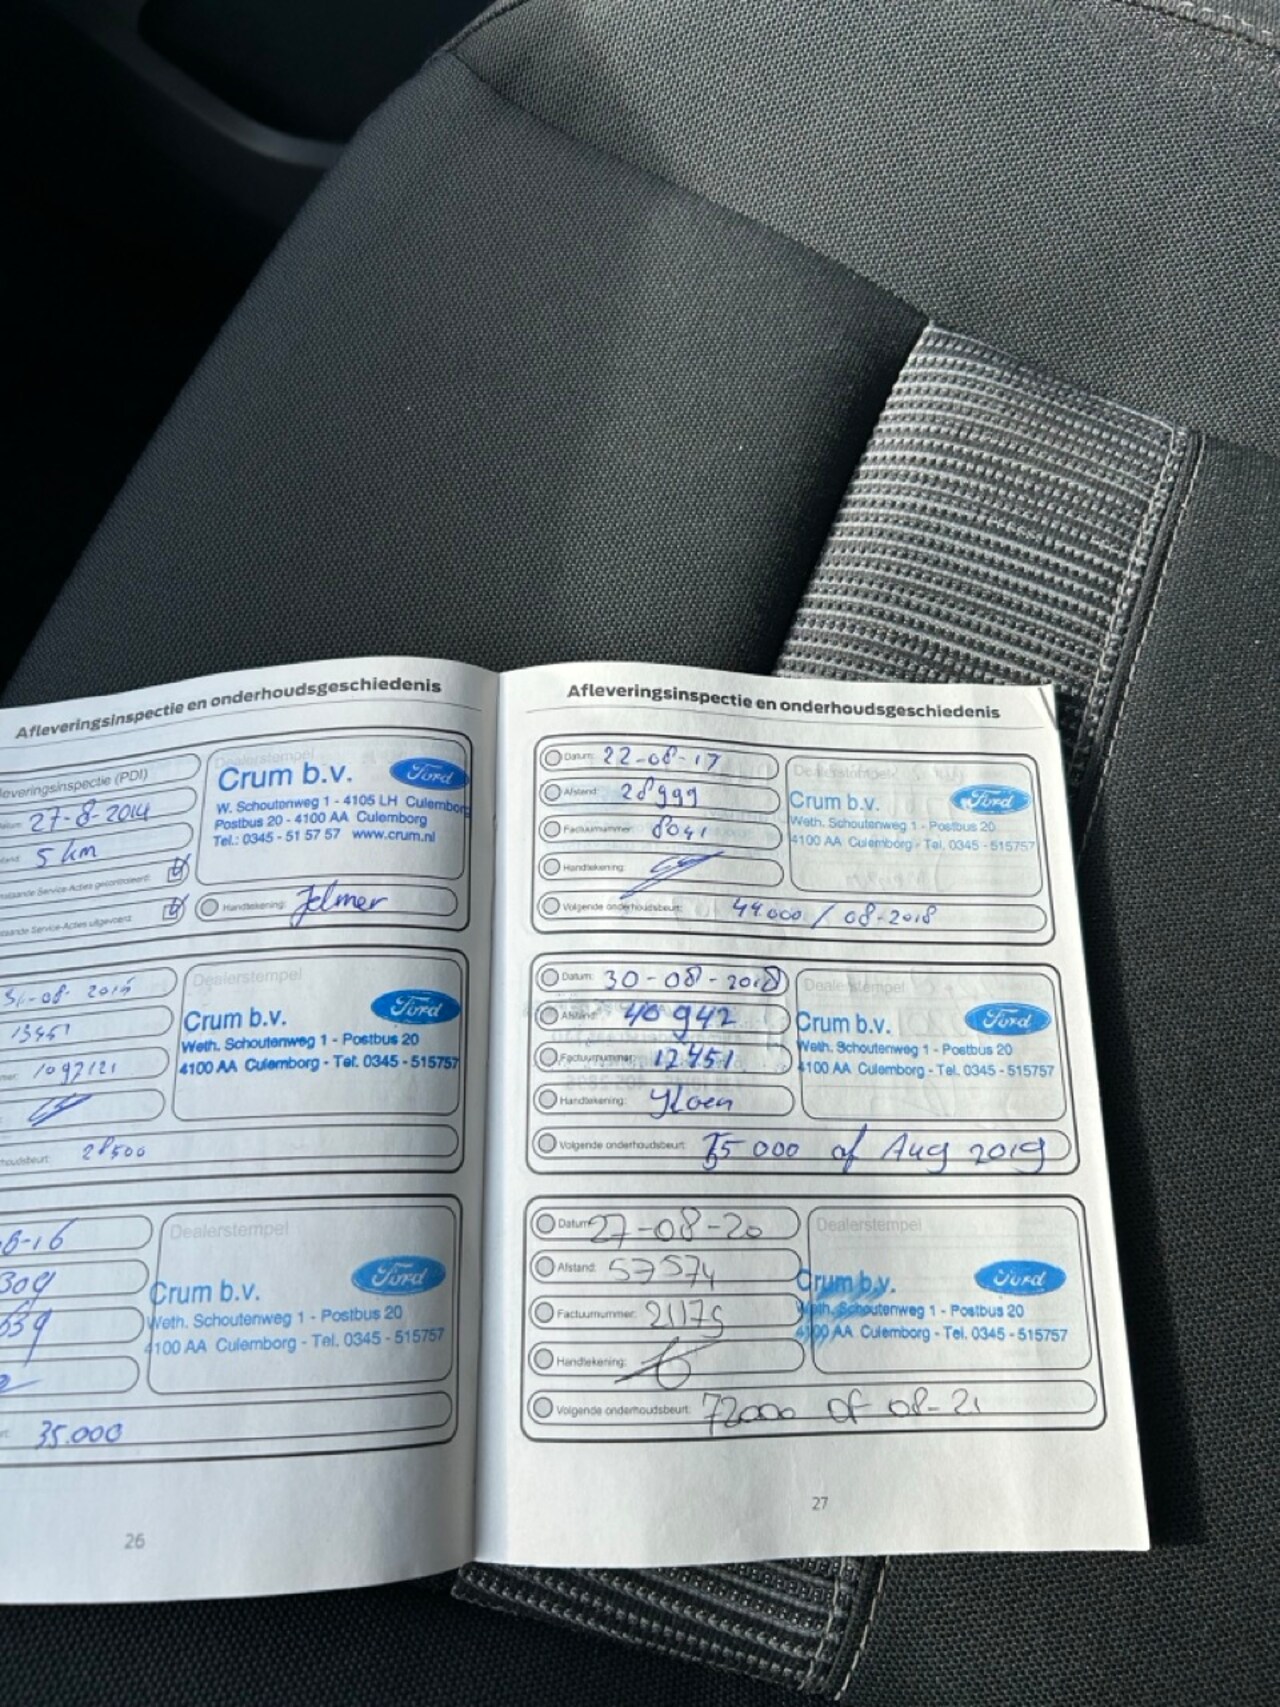 Afleveringsinspectie en onderhoudsgeschiedenis
everingsinspectie (PDI)
27-8-2014
5 km
Dealerstempel
Crum b.v.
Ford
W. Schoutenweg 1 - 4105 LH Culemborg
Postbus 20 - 4100 AA Culemborg
Tel.: 0345 - 51 57 57 www.crum.nl
Handtekening: Jelmer
31-08-2015
13451
1097121
28500
Dealerstempel
Crum b.v.
Ford
Weth. Schoutenweg 1 - Postbus 20
4100 AA Culemborg - Tel. 0345 - 515757
8-16
309
639
35.000
Dealerstempel
Crum b.v.
Ford
Weth. Schoutenweg 1 - Postbus 20
4100 AA Culemborg - Tel. 0345 - 515757
26
Afleveringsinspectie en onderhoudsgeschiedenis
Datum: 22-08-17
Afstand: 28999
Factuurnummer: 8041
Handtekening:
Volgende onderhoudsbeurt: 44.000 / 08-2018
Dealerstempel
Crum b.v.
Ford
Weth. Schoutenweg 1 - Postbus 20
4100 AA Culemborg - Tel. 0345 - 515757
Datum: 30-08-2018
Afstand: 40942
Factuurnummer: 12451
Handtekening:
Volgende onderhoudsbeurt: 55000 of Aug 2019
Dealerstempel
Crum b.v.
Ford
Weth. Schoutenweg 1 - Postbus 20
4100 AA Culemborg - Tel. 0345 - 515757
Datum: 27-08-20
Afstand: 57574
Factuurnummer: 21175
Handtekening:
Volgende onderhoudsbeurt: 72000 of 08-21
Dealerstempel
Crum b.v.
Ford
Weth. Schoutenweg 1 - Postbus 20
4100 AA Culemborg - Tel. 0345 - 515757
27